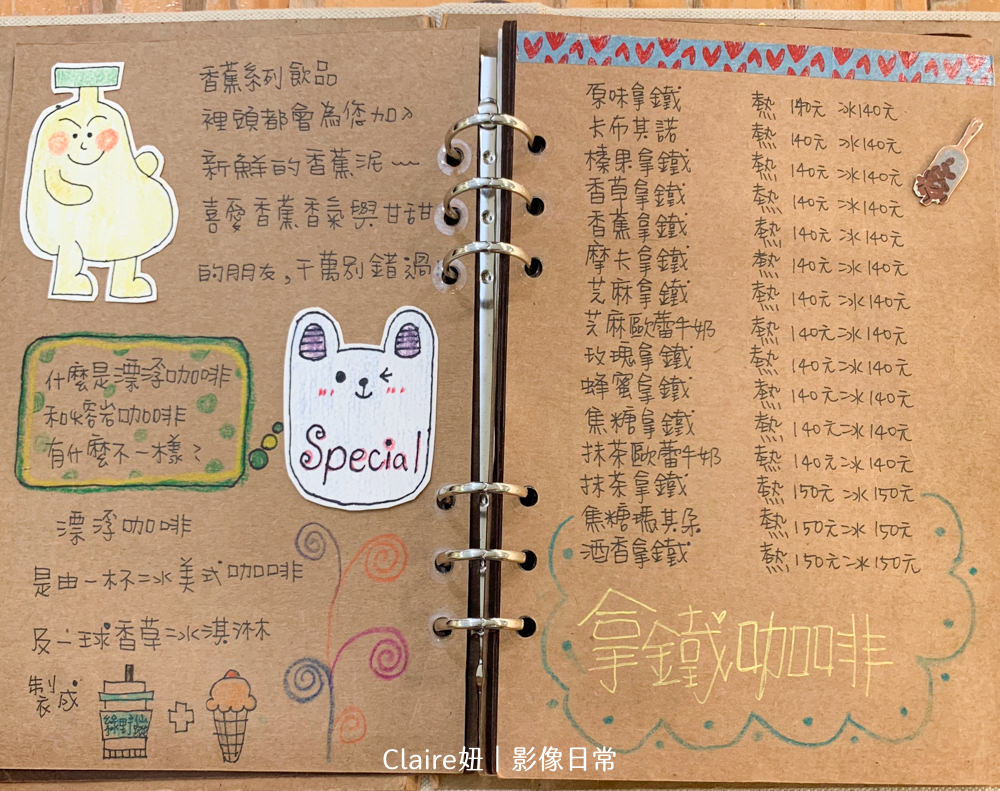 香蕉系列飲品
裡頭都會為您加入
新鮮的香蕉泥～
喜愛香蕉香氣與甘甜
的朋友,千萬別錯過
什麼是漂浮咖啡
和熔岩咖啡
有什麼不一樣?
Special
漂浮咖啡
是由一杯冰美式咖啡
及一球香草冰淇淋
製成
綠野仙蹤
原味拿鐵 熱 140元 冰 140元
卡布其諾 熱 140元 冰 140元
榛果拿鐵 熱 140元 冰 140元
香草拿鐵 熱 140元 冰 140元
香蕉拿鐵 熱 140元 冰 140元
摩卡拿鐵 熱 140元 冰 140元
芝麻拿鐵 熱 140元 冰 140元
芝麻歐蕾牛奶 熱 140元 冰 140元
玫瑰拿鐵 熱 140元 冰 140元
蜂蜜拿鐵 熱 140元 冰 140元
焦糖拿鐵 熱 140元 冰 140元
抹茶歐蕾牛奶 熱 140元 冰 140元
抹茶拿鐵 熱 150元 冰 150元
焦糖瑪其朵 熱 150元 冰 150元
酒香拿鐵 熱 150元 冰 150元
拿鐵咖啡
Claire妞｜影像日常